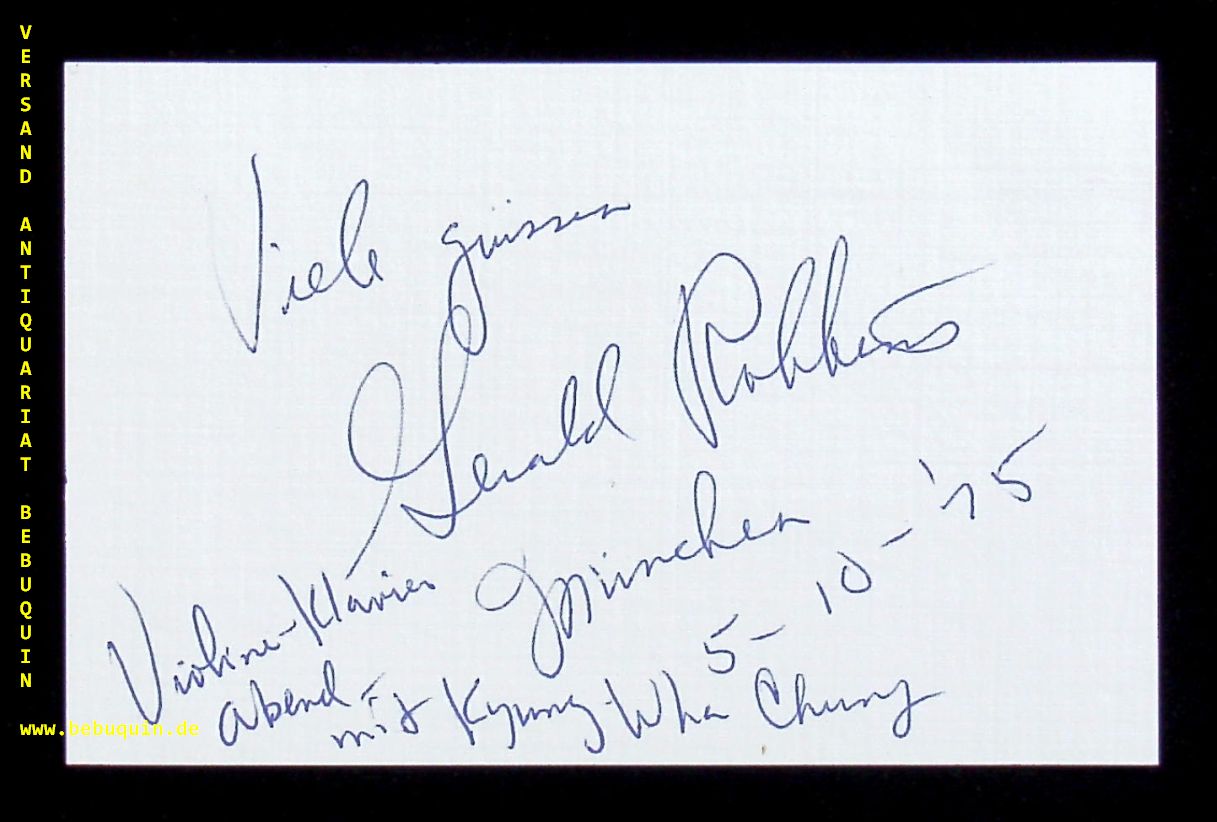 VERSAND ANTIQUARIAT BEBUQUIN
Viele grüssen
Gerald Robbins
München
5-10-'75
Violine-Klavier
abend-
mit Kyung-Wha Chung
www.bebuquin.de